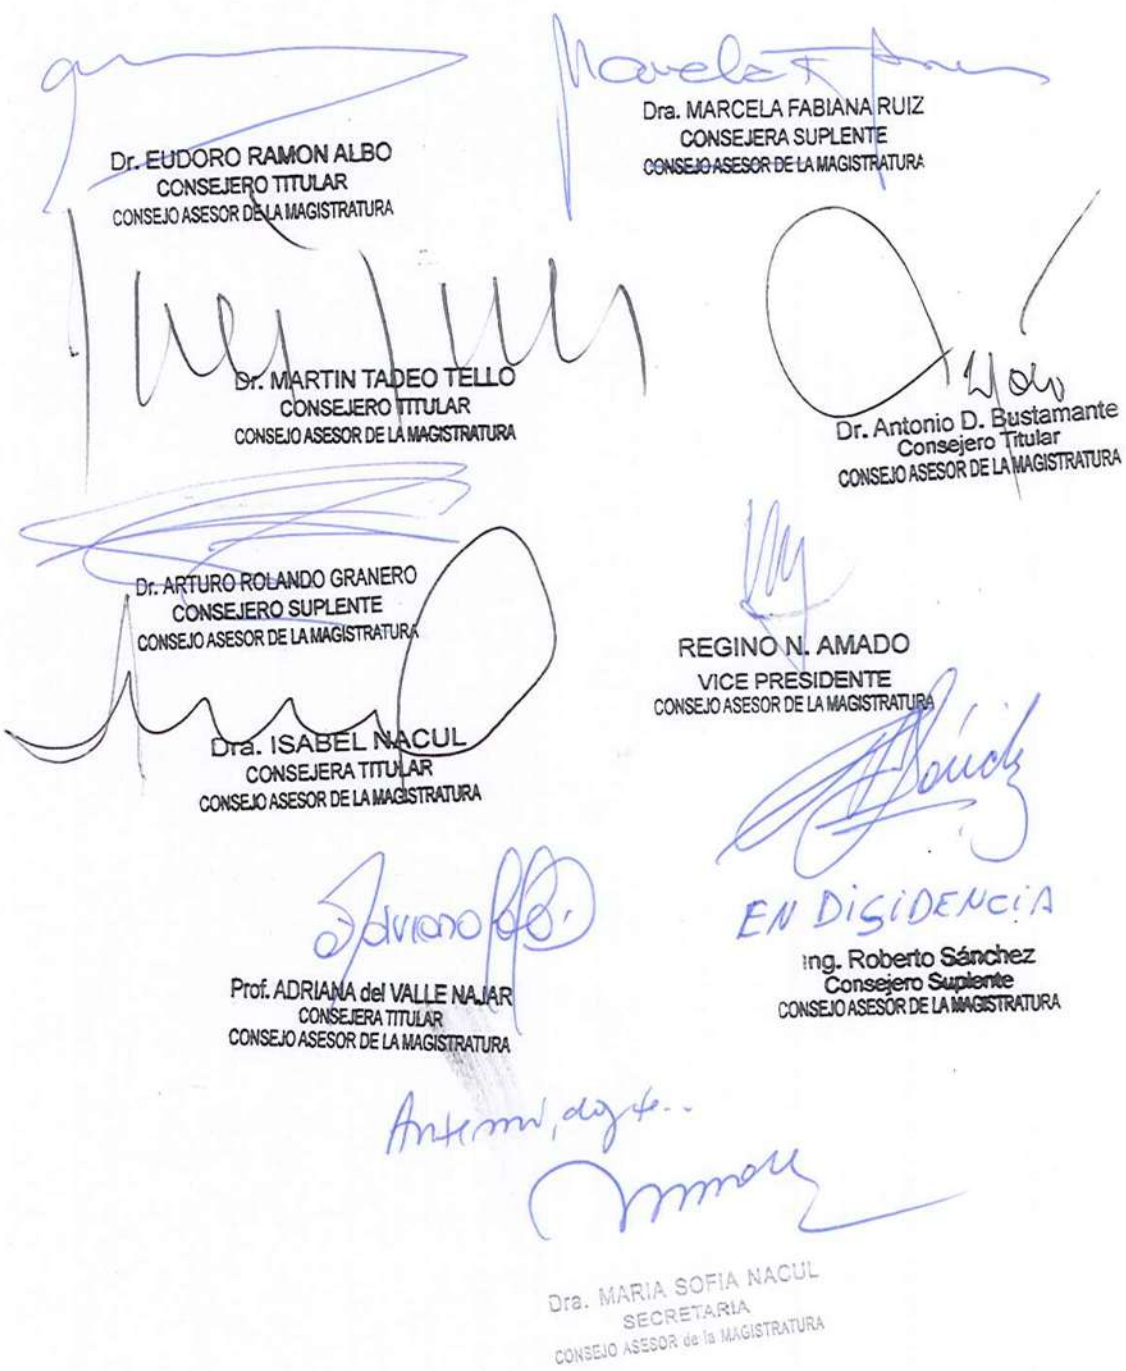 Dr. EUDORO RAMON ALBO
CONSEJERO TITULAR
CONSEJO ASESOR DE LA MAGISTRATURA
Dra. MARCELA FABIANA RUIZ
CONSEJERA SUPLENTE
CONSEJO ASESOR DE LA MAGISTRATURA
Dr. MARTIN TADEO TELLO
CONSEJERO TITULAR
CONSEJO ASESOR DE LA MAGISTRATURA
Dr. Antonio D. Bustamante
Consejero Titular
CONSEJO ASESOR DE LA MAGISTRATURA
Dr. ARTURO ROLANDO GRANERO
CONSEJERO SUPLENTE
CONSEJO ASESOR DE LA MAGISTRATURA
REGINO N. AMADO
VICE PRESIDENTE
CONSEJO ASESOR DE LA MAGISTRATURA
Dra. ISABEL NACUL
CONSEJERA TITULAR
CONSEJO ASESOR DE LA MAGISTRATURA
EN DISIDENCIA
Ing. Roberto Sánchez
Consejero Suplente
CONSEJO ASESOR DE LA MAGISTRATURA
Prof. ADRIANA del VALLE NAJAR
CONSEJERA TITULAR
CONSEJO ASESOR DE LA MAGISTRATURA
Ante mi, doy fe..
Dra. MARIA SOFIA NACUL
SECRETARIA
CONSEJO ASESOR de la MAGISTRATURA